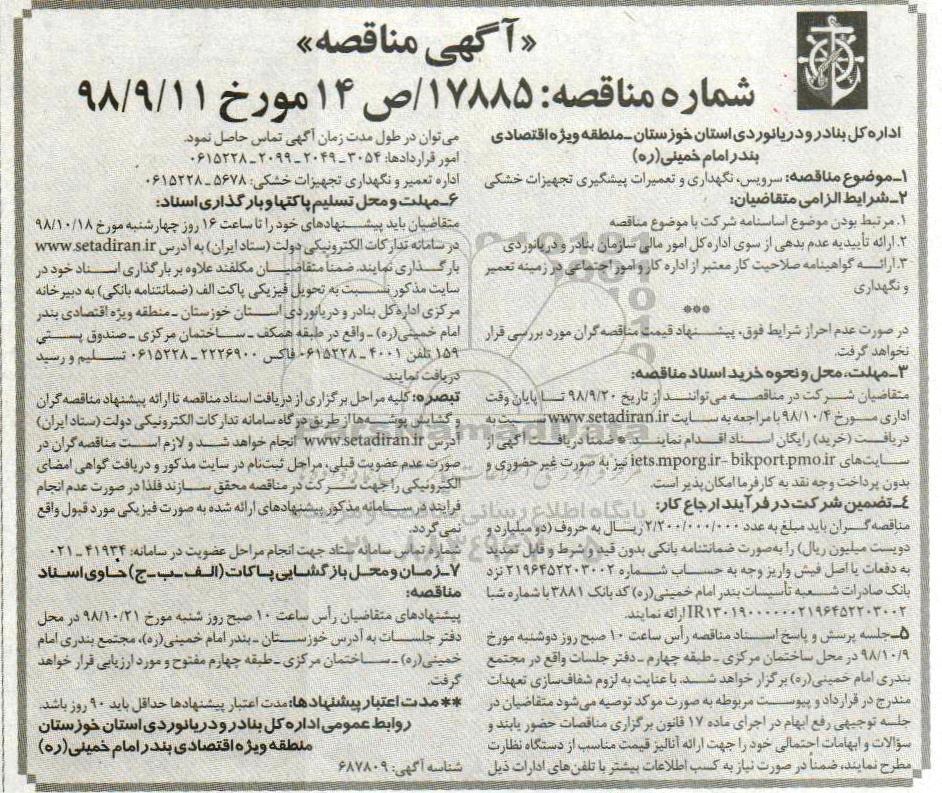 «آگهی مناقصه»
شماره مناقصه: ۱۷۸۸۵/ص ۱۴ مورخ ۹۸/۹/۱۱
اداره کل بنادر و دریانوردی استان خوزستان ـ منطقه ویژه اقتصادی
بندر امام خمینی(ره)
۱ـ موضوع مناقصه: سرویس، نگهداری و تعمیرات پیشگیری تجهیزات خشکی
۲ـ شرایط الزامی متقاضیان:
۱. مرتبط بودن موضوع اساسنامه شرکت با موضوع مناقصه
۲. ارائه تأییدیه عدم بدهی از سوی اداره کل امور مالی سازمان بنادر و دریانوردی
۳. ارائه گواهینامه صلاحیت کار معتبر از اداره کار و امور اجتماعی در زمینه تعمیر
و نگهداری
***
در صورت عدم احراز شرایط فوق، پیشنهاد قیمت مناقصه‌گران مورد بررسی قرار
نخواهد گرفت.
۳ـ مهلت، محل و نحوه خرید اسناد مناقصه:
متقاضیان شرکت در مناقصه می‌توانند از تاریخ ۹۸/۹/۲۰ تا پایان وقت
اداری مورخ ۹۸/۱۰/۴ با مراجعه به سایت www.setadiran.ir نسبت به
دریافت (خرید) رایگان اسناد اقدام نمایند. ضمناً دریافت آگهی از
سایت‌های iets.mporg.ir- bikport.pmo.ir نیز به صورت غیر حضوری و
بدون پرداخت وجه نقد به کارفرما امکان پذیر است.
۴ـ تضمین شرکت در فرآیند ارجاع کار:
مناقصه‌گران باید مبلغ به عدد ۲/۲۰۰/۰۰۰/۰۰۰ ریال به حروف (دو میلیارد و
دویست میلیون ریال) را به‌صورت ضمانتنامه بانکی بدون قید و شرط و قابل تمدید
به دفعات یا اصل فیش واریز وجه به حساب شماره ۲۱۹۶۴۵۲۲۰۳۰۰۲ نزد
بانک صادرات شعبه تأسیسات بندر امام خمینی(ره) کد بانک ۳۸۸۱ با شماره شبا
IR۱۳۰۱۹۰۰۰۰۰۰۲۱۹۶۴۵۲۲۰۳۰۰۲ ارائه نمایند.
۵ـ جلسه پرسش و پاسخ اسناد مناقصه رأس ساعت ۱۰ صبح روز دوشنبه مورخ
۹۸/۱۰/۹ در محل ساختمان مرکزی ـ طبقه چهارم ـ دفتر جلسات واقع در مجتمع
بندری امام خمینی(ره) برگزار خواهد شد. با عنایت به لزوم شفاف‌سازی تعهدات
مندرج در قرارداد و پیوست مربوطه به صورت موکد توصیه می‌شود متقاضیان در
جلسه توجیهی رفع ابهام در اجرای ماده ۱۷ قانون برگزاری مناقصات حضور یابند و
سؤالات و ابهامات احتمالی خود را جهت ارائه آنالیز قیمت مناسب از دستگاه نظارت
مطرح نمایند، ضمناً در صورت نیاز به کسب اطلاعات بیشتر با تلفن‌های ادارات ذیل
می‌توان در طول مدت زمان آگهی تماس حاصل نمود.
امور قراردادها: ۳۰۵۴ ـ ۲۰۴۹ ـ ۲۰۹۹ ـ ۰۶۱۵۲۲۸
اداره تعمیر و نگهداری تجهیزات خشکی: ۵۶۷۸ ـ ۰۶۱۵۲۲۸
۶ـ مهلت و محل تسلیم پاکتها و بارگذاری اسناد:
متقاضیان باید پیشنهادهای خود را تا ساعت ۱۶ روز چهارشنبه مورخ ۹۸/۱۰/۱۸
در سامانه تدارکات الکترونیکی دولت (ستاد ایران) به آدرس www.setadiran.ir
بارگذاری نمایند. ضمناً متقاضیان مکلفند علاوه بر بارگذاری اسناد خود در
سایت مذکور نسبت به تحویل فیزیکی پاکت الف (ضمانتنامه بانکی) به دبیرخانه
مرکزی اداره کل بنادر و دریانوردی استان خوزستان ـ منطقه ویژه اقتصادی بندر
امام خمینی(ره) ـ واقع در طبقه همکف ـ ساختمان مرکزی ـ صندوق پستی
۱۵۹ تلفن ۴۰۰۱ ـ ۰۶۱۵۲۲۸ فاکس ۲۲۲۶۹۰۰ ـ ۰۶۱۵۲۲۸ تسلیم و رسید
دریافت نمایند.
تبصره: کلیه مراحل برگزاری از دریافت اسناد مناقصه تا ارائه پیشنهاد مناقصه‌گران
و گشایش پوشه‌ها از طریق درگاه سامانه تدارکات الکترونیکی دولت (ستاد ایران)
آدرس www.setadiran.ir انجام خواهد شد و لازم است مناقصه گران در
صورت عدم عضویت قبلی، مراحل ثبت‌نام در سایت مذکور و دریافت گواهی امضای
الکترونیکی را جهت شرکت در مناقصه محقق سازند فلذا در صورت عدم انجام
فرایند در سامانه مذکور پیشنهادهای ارائه شده به صورت فیزیکی مورد قبول واقع
نمی‌گردد.
شماره تماس سامانه ستاد جهت انجام مراحل عضویت در سامانه: ۴۱۹۳۴ ـ ۰۲۱
۷ـ زمان و محل بازگشایی پاکات (الف ـ ب ـ ج) حاوی اسناد
مناقصه:
پیشنهادهای متقاضیان رأس ساعت ۱۰ صبح روز شنبه مورخ ۹۸/۱۰/۲۱ در محل
دفتر جلسات به آدرس خوزستان ـ بندر امام خمینی(ره)، مجتمع بندری امام
خمینی(ره) ـ ساختمان مرکزی ـ طبقه چهارم مفتوح و مورد ارزیابی قرار خواهد
گرفت.
** مدت اعتبار پیشنهادها: مدت اعتبار پیشنهادها حداقل باید ۹۰ روز باشد.
روابط عمومی اداره کل بنادر و دریانوردی استان خوزستان
منطقه ویژه اقتصادی بندر امام خمینی(ره)
شناسه آگهی: ۶۸۷۸۰۹